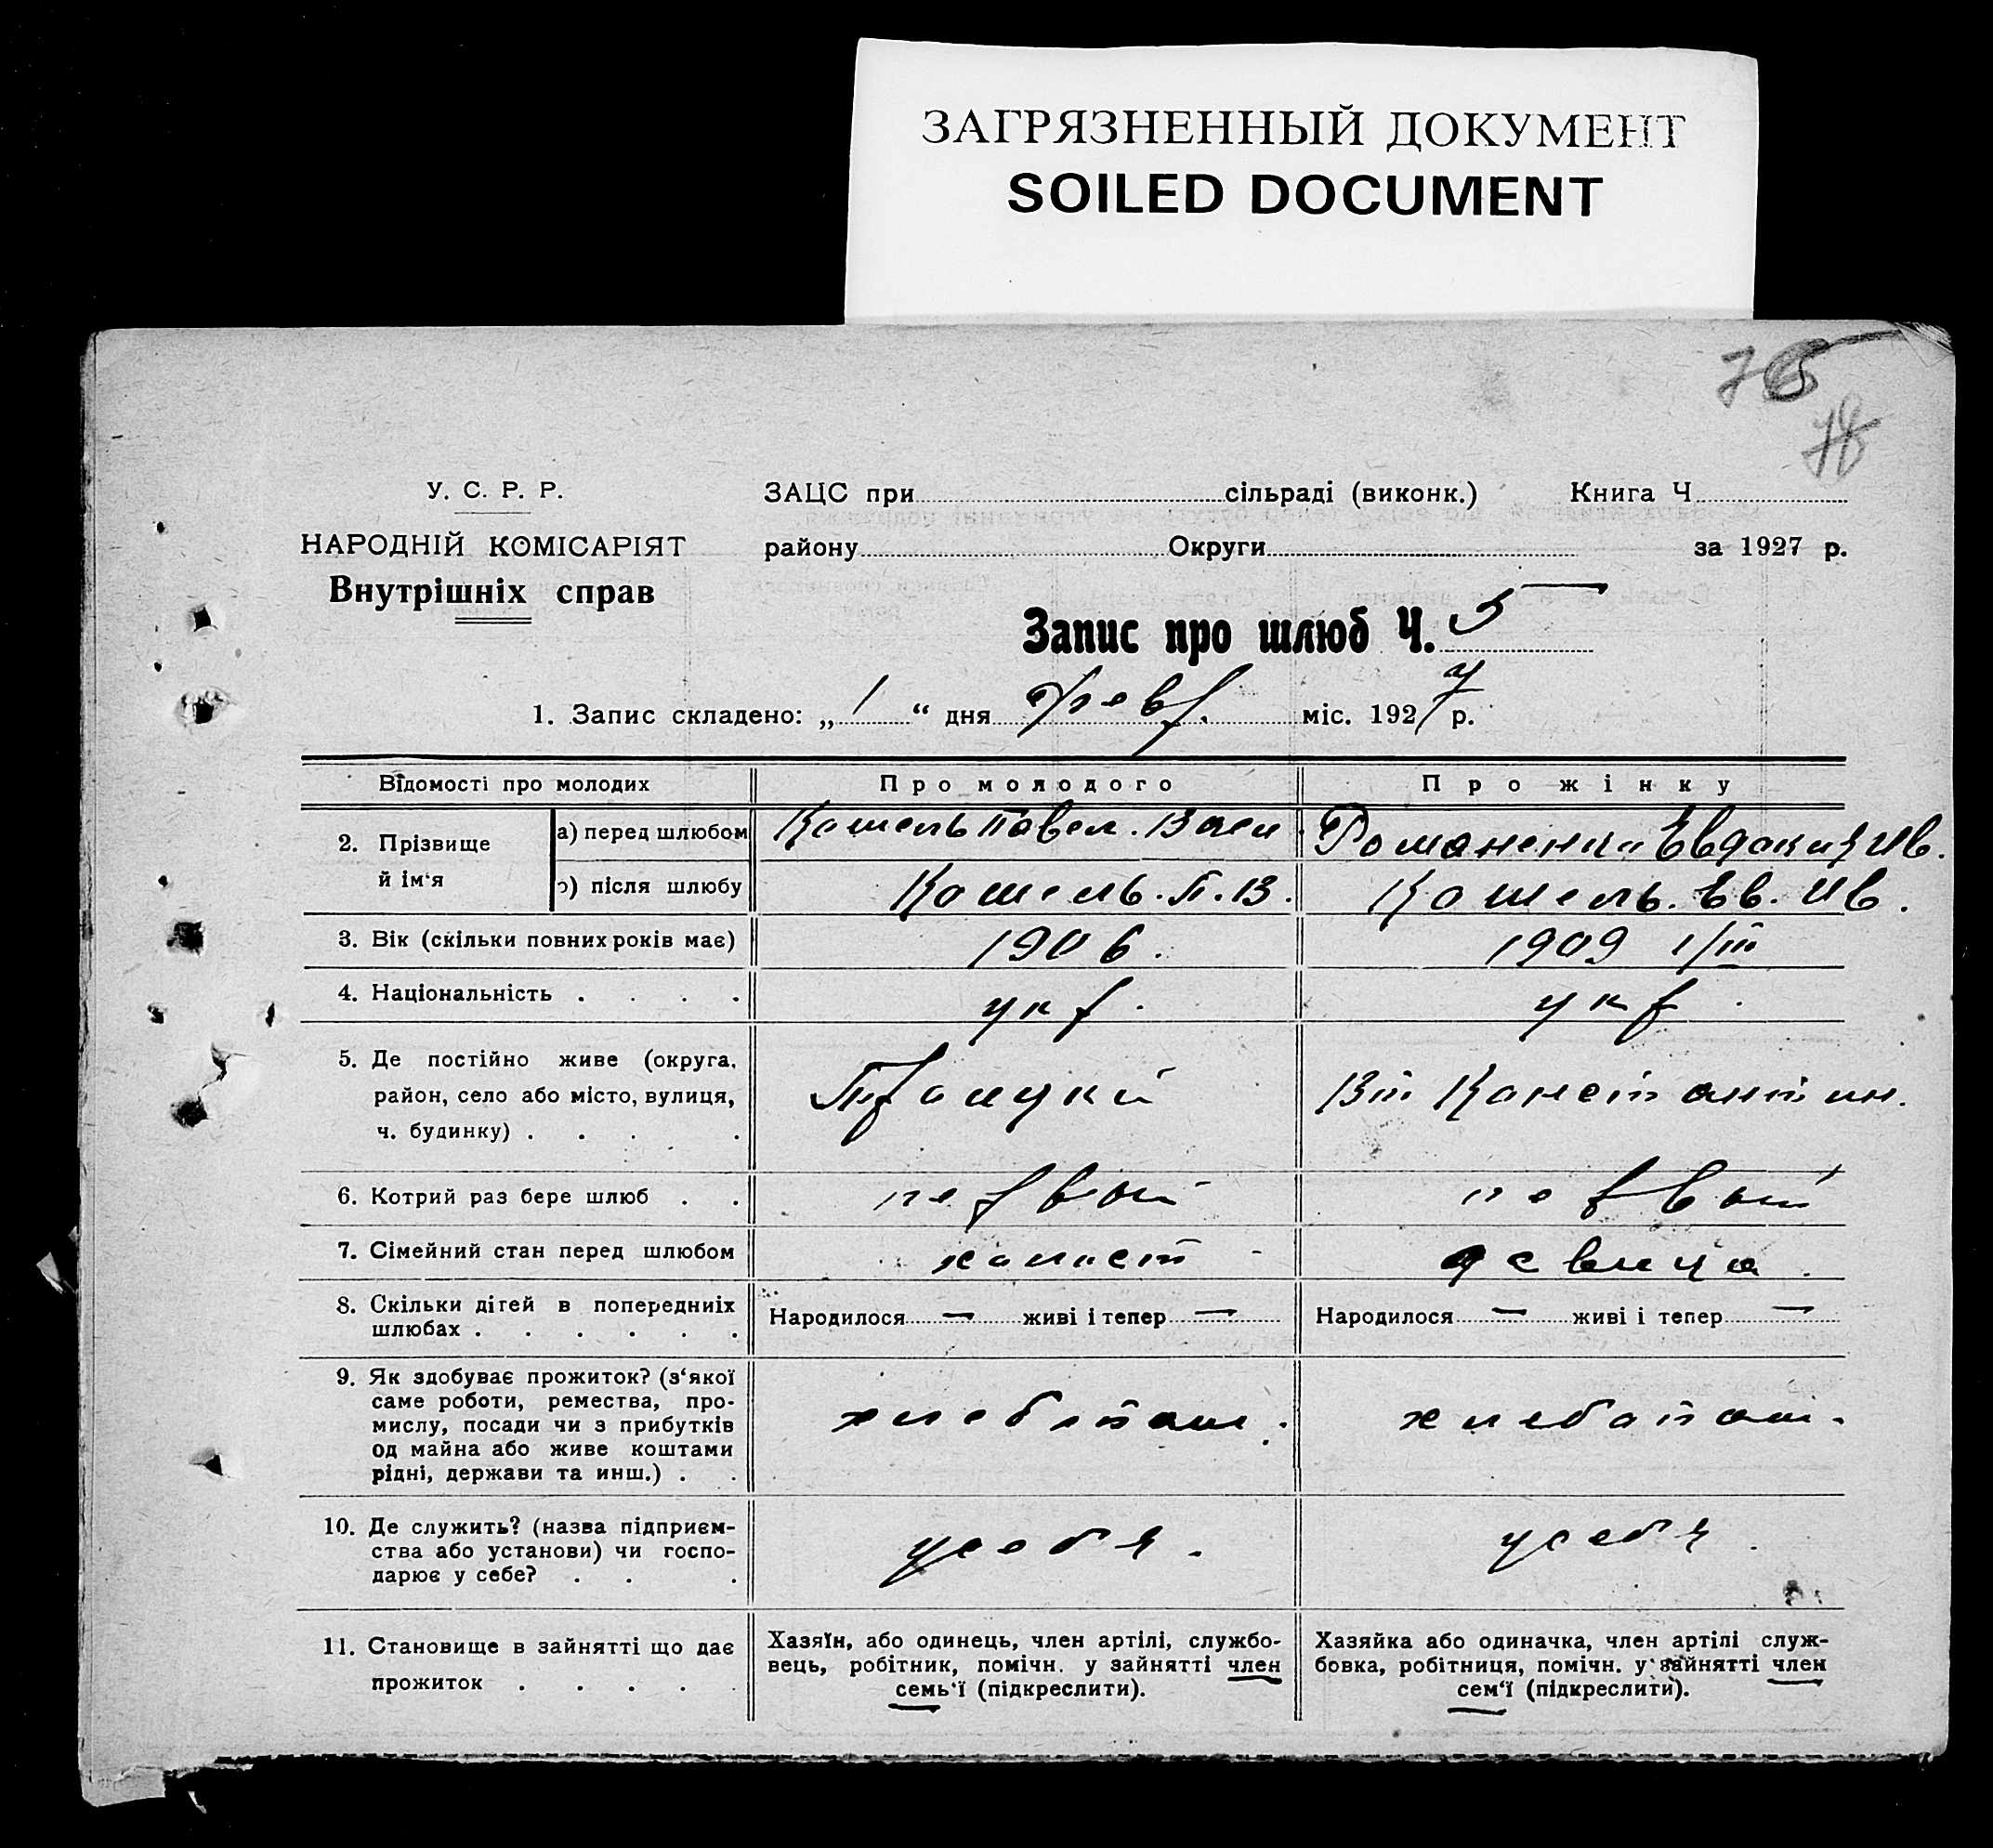 ЗАГРЯЗНЕННЫЙ ДОКУМЕНТ
SOILED DOCUMENT
78
У. С. Р. Р.
НАРОДНІЙ КОМІСАРІЯТ
Внутрішніх справ
ЗАЦС при сільраді (виконк.) Книга Ч
району Округи за 1927 р.
Запис про шлюб Ч. 5
1. Запис складено: „ 1 “ дня февр. міс. 1927 р.
Відомості про молодих Про молодого Про жінку
2. Прізвище й ім‘я
а) перед шлюбом Кошель Павел. Васи Романенко Евдокия Ив.
б) після шлюбу Кошель. П. В. Кошель. Ев. Ив.
3. Вік (скільки повних років має) 1906. 1909 1/III
4. Національність . . . . укр. укр.
5. Де постійно живе (округа,
район, село або місто, вулиця,
ч. будинку) . . . .
Вт Констянтин.
6. Котрий раз бере шлюб . . первый первый
7. Сімейний стан перед шлюбом холост девица.
8. Скільки дігей в попередниіх
шлюбах . . . . . .
Народилося — живі і тепер — Народилося — живі і тепер —
9. Як здобуває прожиток? (з‘якої
саме роботи, ремества, про-
мислу, посади чи з прибутків
од майна або живе коштами
рідні, держави та инш.) . .
хлебопаш. хлебопаш.
10. Де служить? (назва підприєм-
ства або установи) чи госпо-
дарює у себе? . . .
у себя. у себя.
11. Становище в зайнятті що дає
прожиток . . . . .
Хазяїн, або одинець, член артілі, службо-
вець, робітник, помічн. у зайнятті член
семь‘ї (підкреслити).
Хазяйка або одиначка, член артілі служ-
бовка, робітниця, помічн. у зайнятті член
сем‘ї (підкреслити).